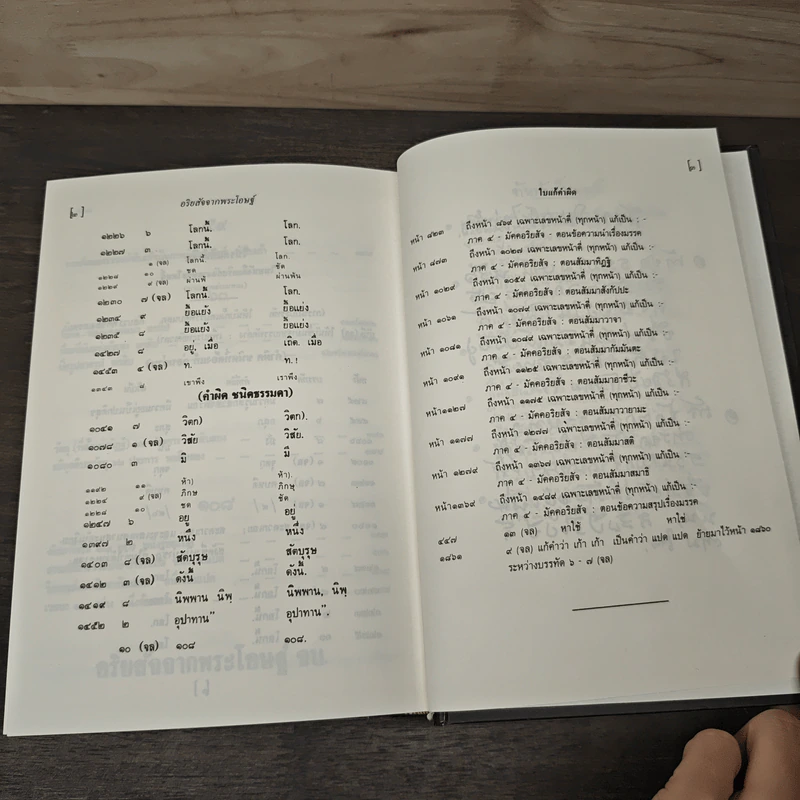 [๒]
อริยสัจจากพระโอษฐ์
๑๒๒๖ ๖ โลกนี้. โลก.
๑๒๒๗ ๓ โลกนี้. โลก.
๑ (จล) โลกนี้ โลก.
๑๒๒๘ ๑๐ ชด ชัด
๑๒๒๙ ๙ (จล) ผ่านพ้ ผ่านพ้น
๑๒๓๐ ๗ (จล) โลกนี้. โลก.
๑๒๓๔ ๙ ย้อแย้ง ย้อแย่ง
๑๒๓๕ ๘ ย้อแย้ง ย้อแย่ง
๑๔๒๗ ๘ อยู่. เมื่อ เถิด. เมื่อ
๑๔๕๓ ๔ (จล) ท. ท. !
๑๓๔๓ ๘ เขาพึง เราพึง
(คำผิด ชนิดธรรมดา)
๑๐๔๑ ๗ วิตก) วิตก).
๑๐๗๘ ๑ (จล) วิสัย วิสัย.
๑๐๘๐ ๓ มิ มี
๑๑๙๒ ๑๑ ห้า) ห้า).
๑๒๒๔ ๙ (จล) ภิกษ ภิกษุ
๑๒๒๘ ๑๐ ชด ชัด
๑๒๔๗ ๖ อยู อยู่
๑๓๙๗ ๒ หนึง หนึ่ง
๑๔๐๓ ๘ (จล) สัตบุรุษ สัตบุรุษ
๑๔๑๒ ๓ (จล) ดังนี้ ดังนี้.
๑๔๑๙ ๘ นิพพาน นิพฺ นิพพาน, นิพฺ
๑๔๕๒ ๒ อุปาทาน" อุปาทาน".
๑๐ (จล) ๑๐๘ ๑๐๘.
ใบแก้คำผิด
[๓]
หน้า ๘๒๓ ถึงหน้า ๘๖๙ เฉพาะเลขหน้าคี่ (ทุกหน้า) แก้เป็น :-
ภาค ๔ - มัคคอริยสัจ - ตอนข้อความนำเรื่องมรรค
หน้า ๘๗๓ ถึงหน้า ๑๐๒๗ เฉพาะเลขหน้าคี่ (ทุกหน้า) แก้เป็น :-
ภาค ๔ - มัคคอริยสัจ : ตอนสัมมาทิฏฐิ
หน้า ๑๐๒๙ ถึงหน้า ๑๐๕๙ เฉพาะเลขหน้าคี่ (ทุกหน้า) แก้เป็น :-
ภาค ๔ - มัคคอริยสัจ : ตอนสัมมาสังกัปปะ
หน้า ๑๐๖๑ ถึงหน้า ๑๐๗๙ เฉพาะเลขหน้าคี่ (ทุกหน้า) แก้เป็น :-
ภาค ๔ - มัคคอริยสัจ : ตอนสัมมาวาจา
หน้า ๑๐๘๑ ถึงหน้า ๑๐๘๙ เฉพาะเลขหน้าคี่ (ทุกหน้า) แก้เป็น :-
ภาค ๔ - มัคคอริยสัจ : ตอนสัมมากัมมันตะ
หน้า ๑๐๙๑ ถึงหน้า ๑๑๒๕ เฉพาะเลขหน้าคี่ (ทุกหน้า) แก้เป็น :-
ภาค ๔ - มัคคอริยสัจ : ตอนสัมมาอาชีวะ
หน้า๑๑๒๗ ถึงหน้า ๑๑๗๕ เฉพาะเลขหน้าคี่ (ทุกหน้า) แก้เป็น :-
ภาค ๔ - มัคคอริยสัจ : ตอนสัมมาวายามะ
หน้า ๑๑๗๗ ถึงหน้า ๑๒๗๗ เฉพาะเลขหน้าคี่ (ทุกหน้า) แก้เป็น :-
ภาค ๔ - มัคคอริยสัจ : ตอนสัมมาสติ
หน้า ๑๒๗๙ ถึงหน้า ๑๓๖๗ เฉพาะเลขหน้าคี่ (ทุกหน้า) แก้เป็น :-
ภาค ๔ - มัคคอริยสัจ : ตอนสัมมาสมาธิ
หน้า๑๓๖๙ ถึงหน้า ๑๔๘๙ เฉพาะเลขหน้าคี่ (ทุกหน้า) แก้เป็น :-
ภาค ๔ - มัคคอริยสัจ : ตอนข้อความสรุปเรื่องมรรค
๔๔๗ ๑๓ (จล) หาใช้ หาใช่
๑๘๖๑ ๙ (จล) แก้คำว่า เก้า เก้า เป็นคำว่า แปด แปด ย้ายมาไว้หน้า ๑๘๖๐
ระหว่างบรรทัด ๖ - ๗ (จล)